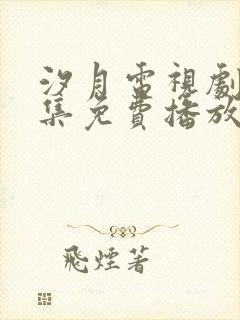 汐月電視劇
集免費播放
飛煙著